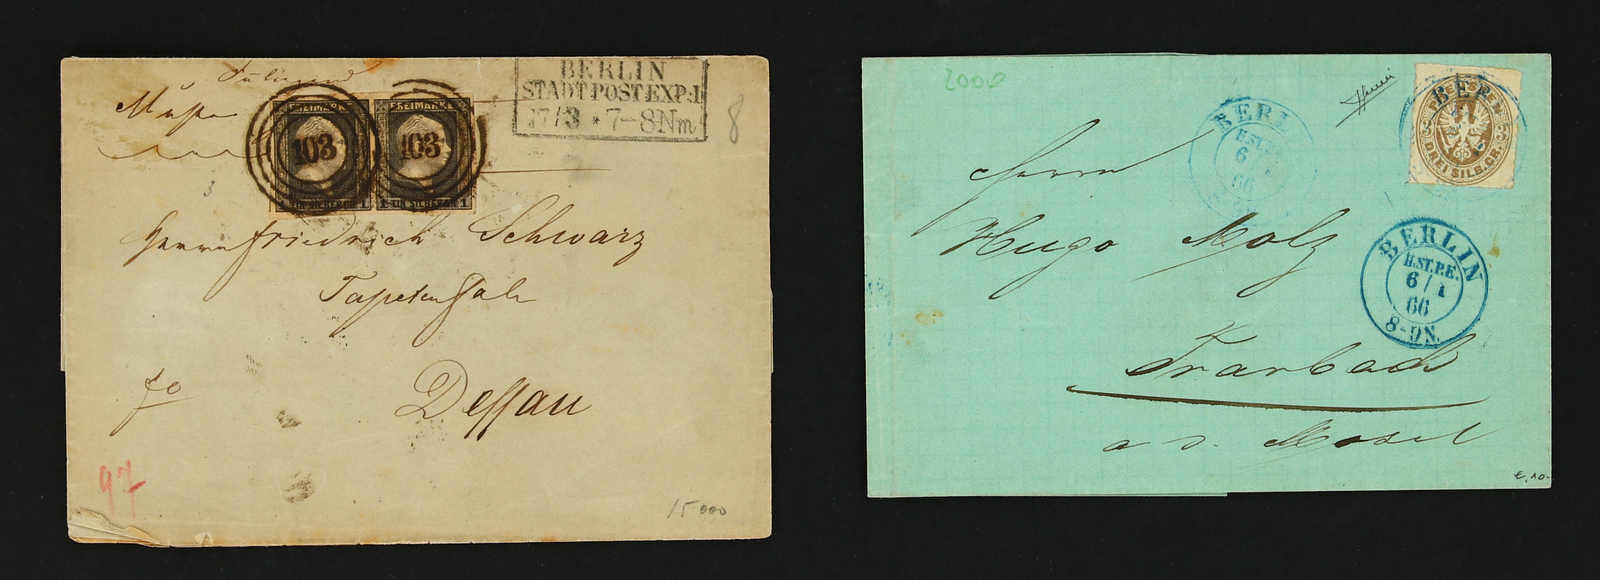 BERLIN
STADTPOST EXP: I
17/3 * 7-8 Nm
8
FREIMARKE
FREIMARKE
103
103
1 EIN SILBERGR. 1
1 EIN SILBERGR. 1
Herrn Friedrich Schwarz
Dessau
fo
97
15000
2000
BERLIN
H.ST.P.E.
6
66
BERL
PREUSSEN
3
3
DREI SILB. GR.
Herrn
Hugo Molz
BERLIN
H.ST.P.E.
6/1
66
8-9N.
Trarbach
a. d. Mosel